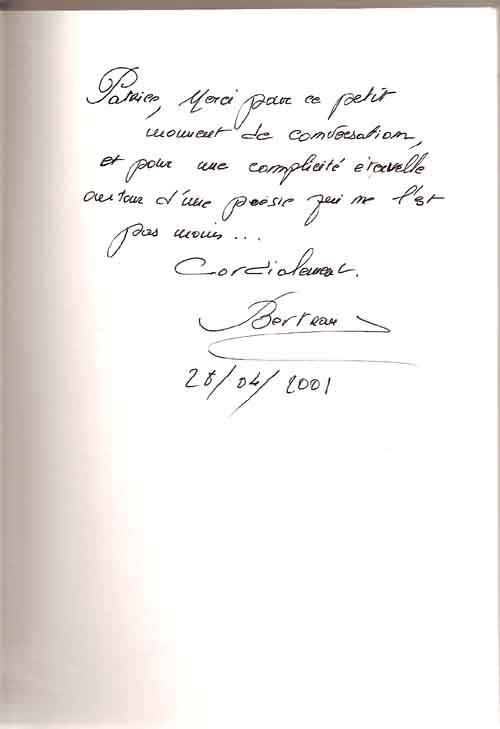 Patrice, Merci pour ce petit
moment de conversation,
et pour une complicité éternelle
autour d'une poésie qui ne l'est
pas moins...
Cordialement.
Bertran
28/04/2001